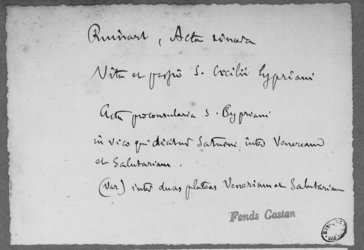 Ruinart, Acta sincera
Vita et passio S. Cæcilii Cypriani
Acta proconsularia S. Cypriani
in vico qui dicitur Saturni, inter Veneream
et Salutariam.
(Var) inter duas plateas Venerium et Salutarium
Fonds Castan